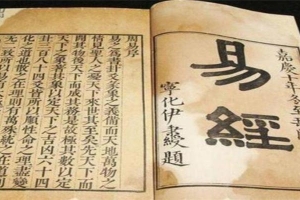 嘉慶十年冬
易經
寧化伊秉綬題
周易序
易之為書卦爻彖象之義備而天地萬物之
情見聖人之憂天下來世其至矣先天下而
開其物後天下而成其務是故極其數以定
天下之象著其象以定天下之吉凶六十四
卦三百八十四爻皆所以順性命之理盡變
化之道也散之在理則有萬殊統之在道則
无二致所以